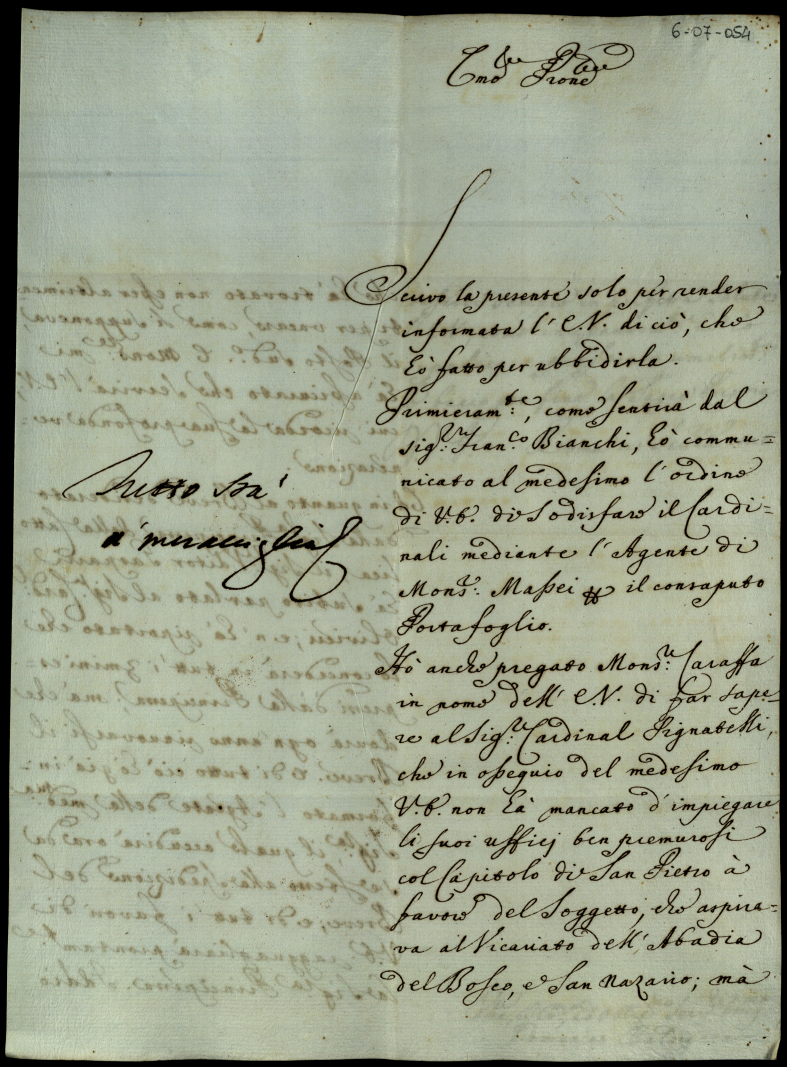 6-07-054
Em̃o Pr̃one
Scrivo la presente solo per render
informata l'E.V. di ciò, che
hò fatto per ubbidirla.
Primieram.te, come sentirà dal
sig.r Fran.co Bianchi, hò commu=
nicato al medesimo l'ordine
di V.E. di sodisfare il Cardi=
nali mediante l'Agente di
Mons.r Massei il consaputo
Portafoglio.
Hò anche pregato Mons.r Caraffa
in nome dell'E.V. di far sape=
re al Sig.r Cardinal Pignatelli,
che in ossequio del medesimo
V.E. non hà mancato d'impiegare
li suoi ufficj ben premurosi
col Capitolo di San Pietro à
favore del Soggetto, che aspira=
va al Vicariato dell'Abadia
del Bosco, e San Nazario; mà
Tutto stà
à meraviglia